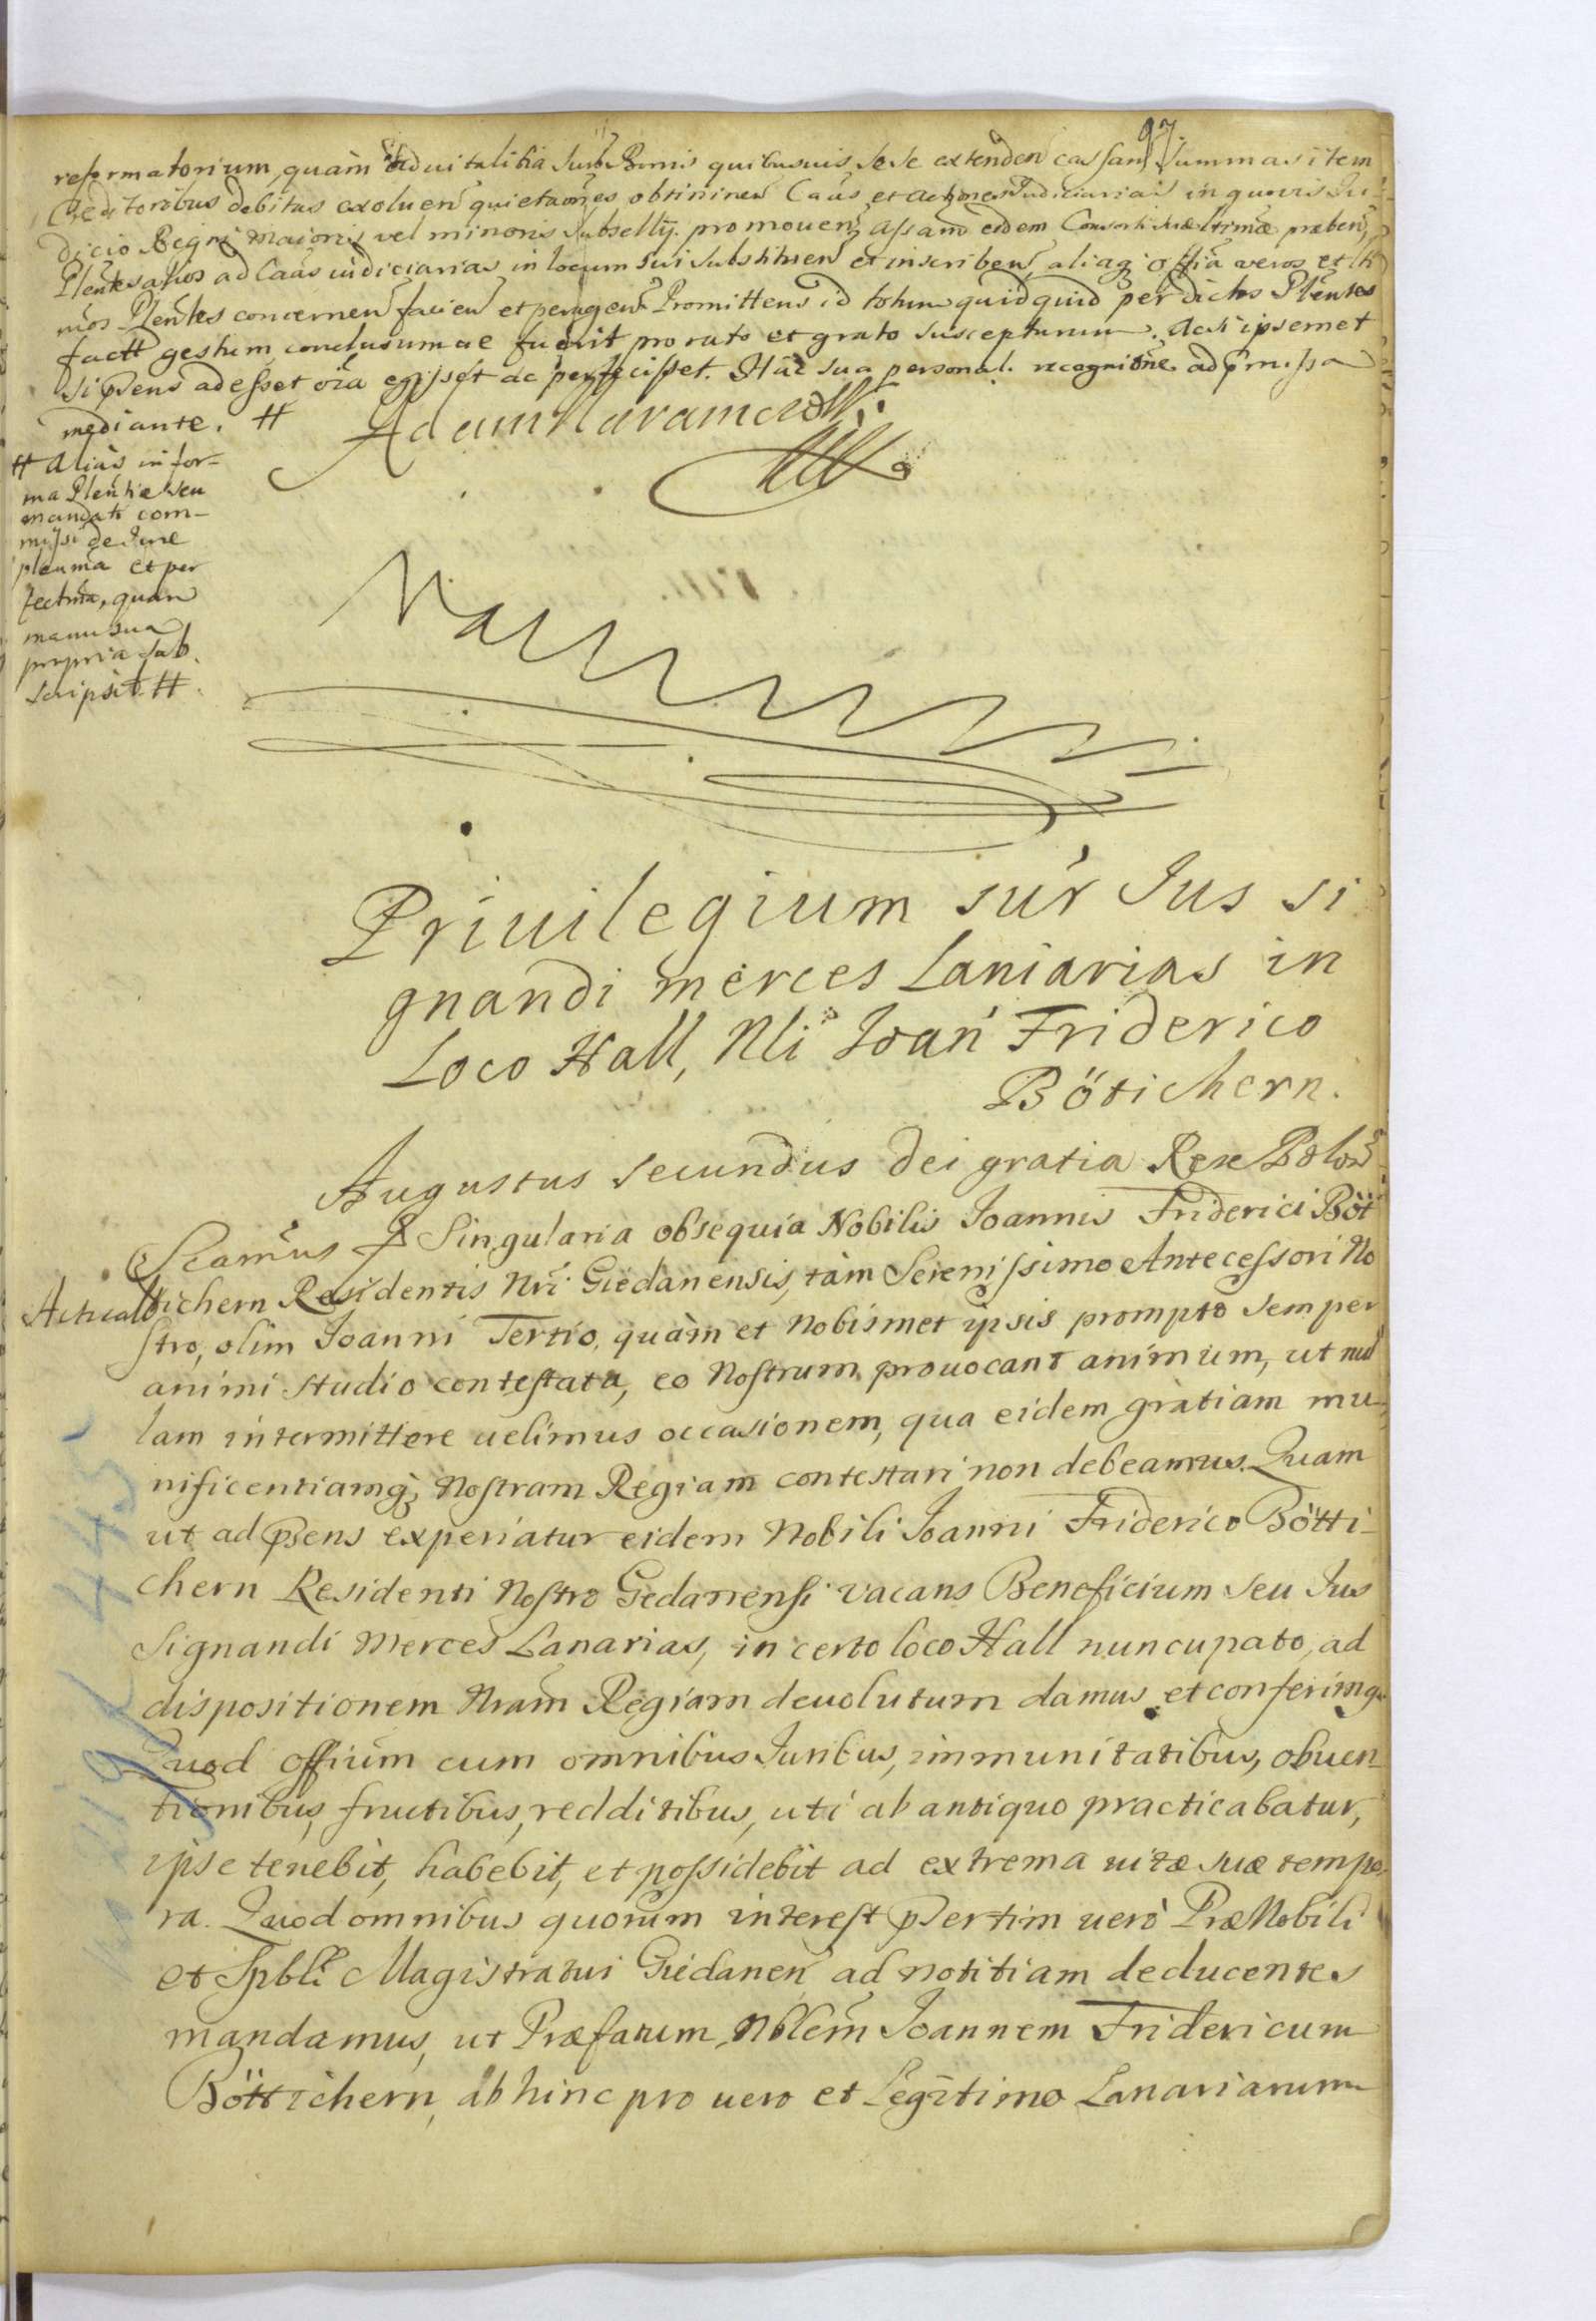 97
reformatorium, quàm aduitalitia super Bonis quibusuis sese extenden cassan Summas item
Creditoribus debitas exoluen quietaões obtininen Caus et actiones Judiciarias in quovis Ju-
dicio Regni Maioris vel minoris Subsellij promouen, eidem præben,
Plentes alios ad Caus iudiciarias in locum sui substituen et inscriben, aliaq offia veros et
mos Plentes concernen facien et peragen Promittens id totum quidquid per dictos Plentes
factt gestum, conclusum ae fuerit pro rato et grato suscepturum. Acsi ipsemet
si psens adesset oia egisset ac perfecisset. Hac sua personal. recognitne ad pmissa
mediante. #
# Alias in for-
ma Plentiæ seu
mandati com-
missi de Jure
plenma et per
fectma, quam
manu sua
propria sub
scripsit #
Priuilegium sur Jus si
gnandi merces Laniarias in
Loco Hall, Nli Joan Friderico
Bötichern.
Augustus Secundus dei gratia Rex Polon
Singularia obsequia Nobilis Joannis Friderici Böt
Actual tichern Residentis Nri Giedanensis, tàm Serenissimo Antecessori No
stro, olim Joanni Tertio, quàm et Nobismet ipsis prompto semper
animi studio contestata, eo Nostrum prouocant animum, ut nul
lam intermittere uelimus occasionem, qua eidem gratiam mu
nificentiamq; Nostram Regiam contestari non debeamus. Quam
ut ad psens experiatur eidem Nobili Joanni Friderico Bötti-
chern Residenti Nostro Gedanensi vacans Beneficium seu Jus
Signandi Merces Lanarias, in certo loco Hall nuncupato, ad
dispositionem Nram Regiam deuolutum damus et conferimq.
Quod offium cum omnibus Juribus, immunitatibus, obuen-
tionibus, fructibus, redditibus, uti ab antiquo practicabatur,
ipse tenebit, habebit, et possidebit ad extrema uitæ suæ tempo
ra. Quod omnibus quorum interest psertim uerò PræNobili
et Spbli Magistratui Giedanen ad notitiam deducentes
mandamus, ut Præfatum Nblem Joannem Fridericum
Böttichern, abhinc pro uero et Legitimo Lanariarum